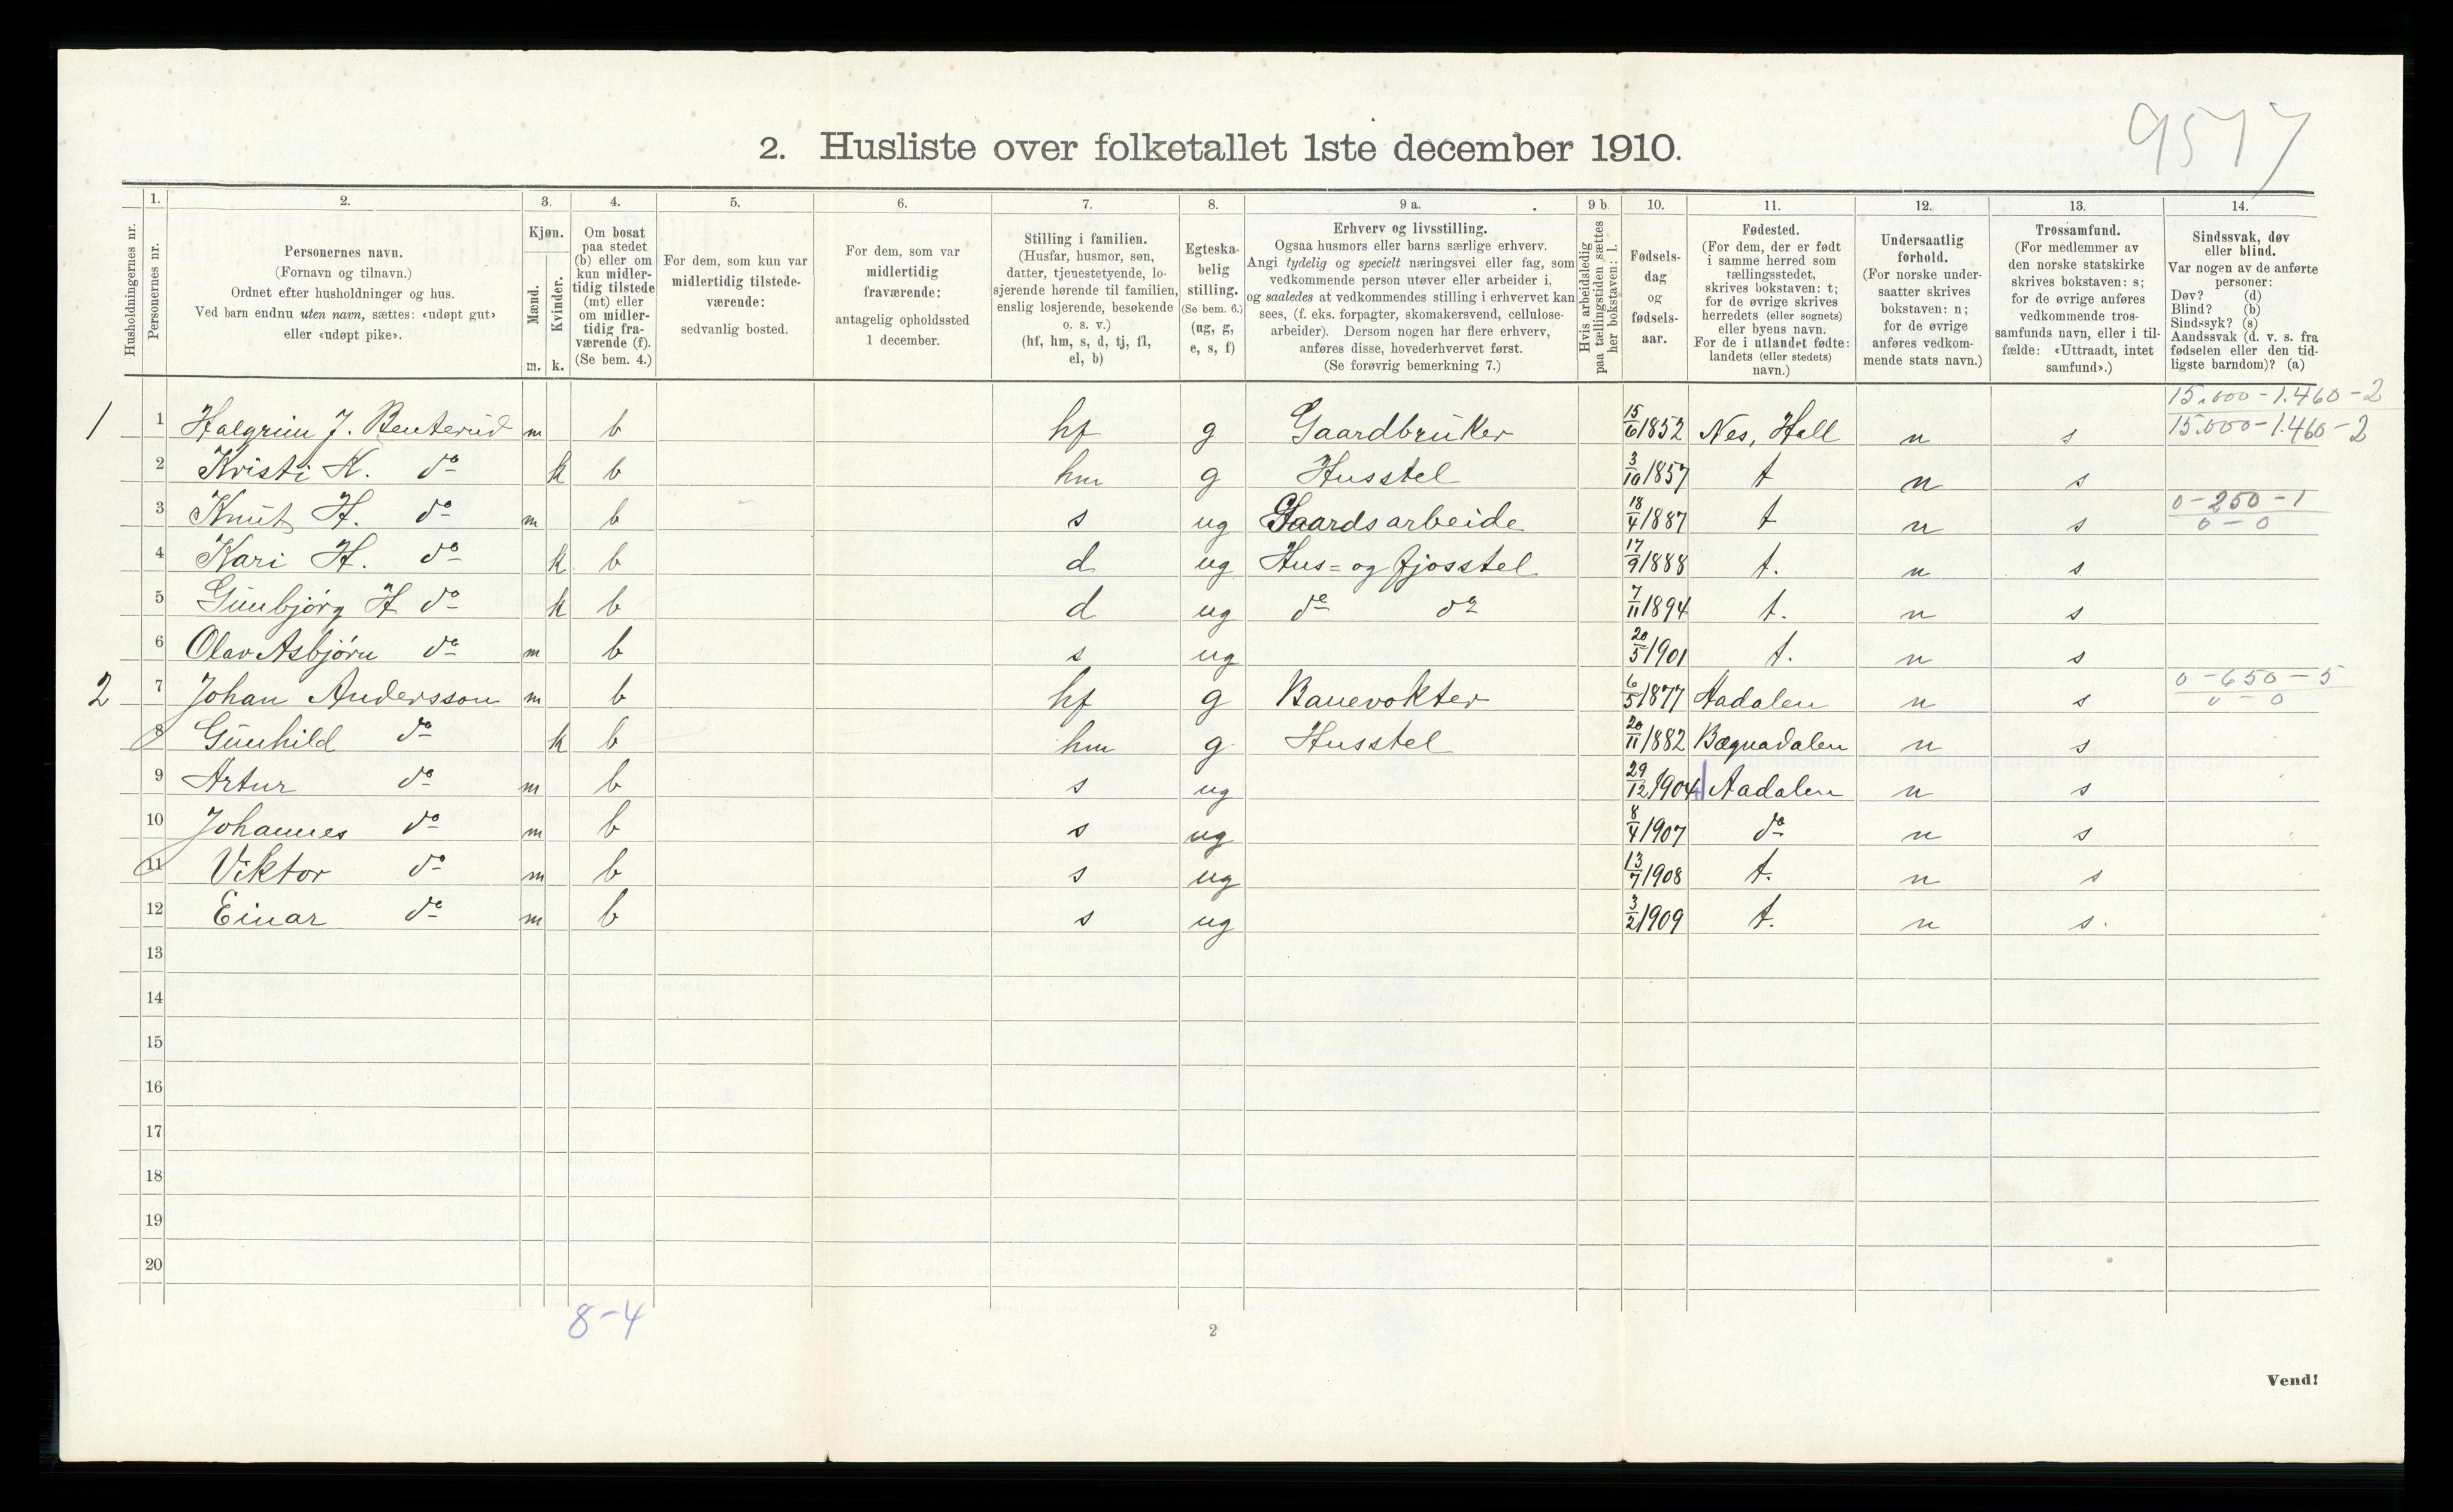 9577
2. Husliste over folketallet 1ste december 1910.
Husholdningernes nr.
1. Personernes nr.
2. Personernes navn. (Fornavn og tilnavn.) Ordnet efter husholdninger og hus. Ved barn endnu uten navn, sættes: «udøpt gut» eller «udøpt pike».
3. Kjøn. Mænd. m. Kvinder. k.
4. Om bosat paa stedet (b) eller om kun midlertidig tilstede (mt) eller om midlertidig fraværende (f). (Se bem. 4.)
5. For dem, som kun var midlertidig tilstedeværende: sedvanlig bosted.
6. For dem, som var midlertidig fraværende: antagelig opholdssted 1 december.
7. Stilling i familien. (Husfar, husmor, søn, datter, tjenestetyende, losjerende hørende til familien, enslig losjerende, besøkende o. s. v.) (hf, hm, s, d, tj, fl, el, b)
8. Egteskabelig stilling. (Se bem. 6.) (ug, g, e, s, f)
9 a. Erhverv og livsstilling. Ogsaa husmors eller barns særlige erhverv. Angi tydelig og specielt næringsvei eller fag, som vedkommende person utøver eller arbeider i, og saaledes at vedkommendes stilling i erhvervet kan sees, (f. eks. forpagter, skomakersvend, cellulosearbeider). Dersom nogen har flere erhverv, anføres disse, hovederhvervet først. (Se forøvrig bemerkning 7.)
9 b. Hvis arbeidsledig paa tællingstiden sættes her bokstaven: l.
10. Fødselsdag og fødselsaar.
11. Fødested. (For dem, der er født i samme herred som tællingsstedet, skrives bokstaven: t; for de øvrige skrives herredets (eller sognets) eller byens navn. For de i utlandet fødte: landets (eller stedets) navn.)
12. Undersaatlig forhold. (For norske undersaatter skrives bokstaven: n; for de øvrige anføres vedkommende stats navn.)
13. Trossamfund. (For medlemmer av den norske statskirke skrives bokstaven: s; for de øvrige anføres vedkommende trossamfunds navn, eller i tilfælde: «Uttraadt, intet samfund».)
14. Sindssvak, døv eller blind. Var nogen av de anførte personer: Døv? (d) Blind? (b) Sindssyk? (s) Aandssvak (d. v. s. fra fødselen eller den tidligste barndom)? (a)
15.000-1.460-2
1 1 Halgrim J. Benterud m b hf g Gaardbruker 15/6 1852 Nes, Hall n s 15.000-1.460-2
2 Kristi K. do k b hm g Husstel 3/10 1857 t n s
3 Knut H. do m b s ug Gaardsarbeide 18/4 1887 t n s 0-250-1 0-0
4 Kari H. do k b d ug Hus= og fjosstel 17/9 1888 t. n s
5 Gunbjørg H do k b d ug do do 7/11 1894 t. n s
6 Olav Asbjørn do m b s ug 20/5 1901 t. n s
2 7 Johan Andersson m b hf g Banevokter 6/5 1877 Aadalen n s 0-650-5 0-0
8 Gunhild do k b hm g Husstel 20/11 1882 Bægnadalen n s
9 Artur do m b s ug 29/12 1904 Aadalen n s
10 Johannes do m b s ug 8/4 1907 do n s
11 Viktor do m b s ug 13/7 1908 t. n s
12 Einar do m b s ug 3/2 1909 t. n s.
13
14
15
16
17
18
19
20
8-4
2
Vend!